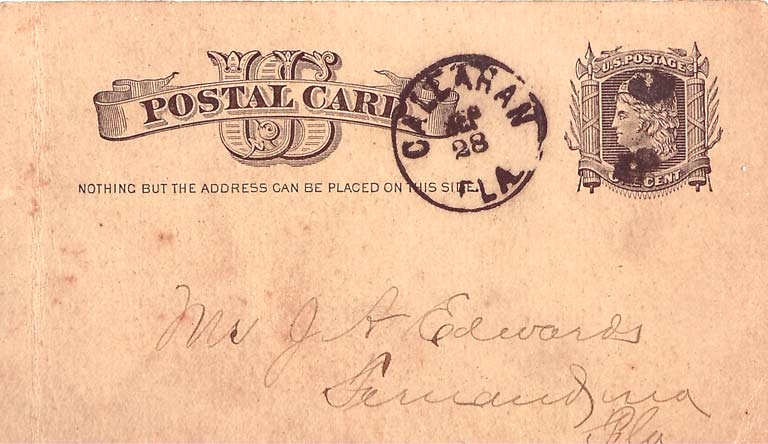 US
POSTAL CARD
NOTHING BUT THE ADDRESS CAN BE PLACED ON THIS SIDE.
CALLAHAN
SEP
28
FLA
U.S. POSTAGE
ONE CENT
Mr J A Edwards
Fernandina
Fla